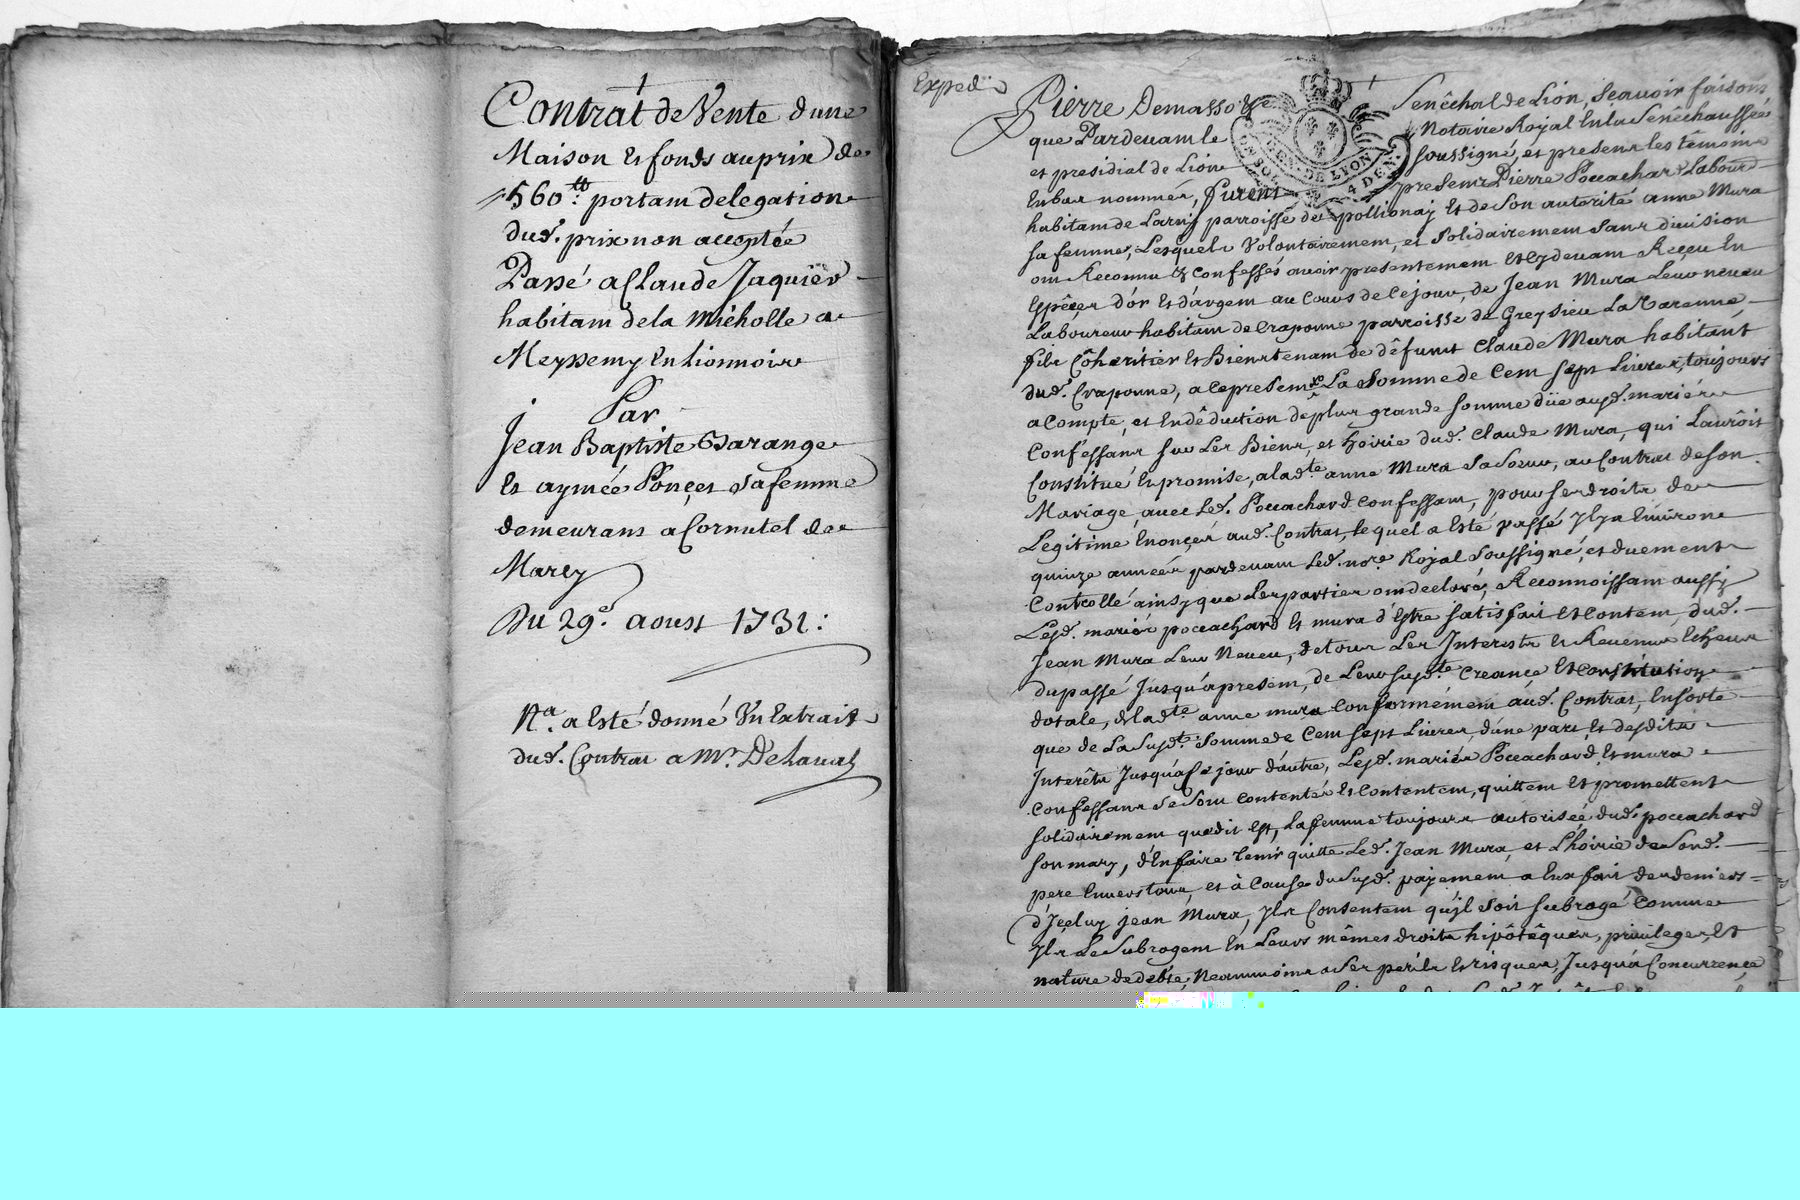 Contrat de Vente dune
Maison et fonds au prix de
560tt: portant delegation
dud. prix non acceptée
Passé a Claude Jaquier
habitant de la Micholle a
Meyssemy en Lionnois
Par
Jean Baptiste Barange
et aymée Ponçet sa femme
demeurans a Cornutel de
Marcy
Du 29e. aoust 1731:
Na. a Esté donné Un Extrait
dud. Contrat a Mr. Delaval
Exped.
Pierre Demasso Senêchal de Lion, Scavoir faisons
que Pardevant le Notaire Royal En la Senêchaussée
et presidial de Lion soussigné, et presens les têmoins
En bas nommés, furent presens Pierre Poccachard Labour
habitant de Larny parroisse de pollionay Et de Son autorité anne Mura
sa femme, Lesquels Volontairement, et Solidairement sans division
ont Reconnu & Confessés avoir presentement Et cydevant Reçeu En
Espêces d'or Et d'argent au Cours de ce jour, de Jean Mura Leur neveu
Laboureur habitant de Craponne parroisse de Greysieu La Varenne,
fils Côhéritier Et Bienstenant de dêfunt Claude Mura habitant
dud. Craponne, a ce present La Somme de Cent sept Livres, toujours
a Compte, et En dêduction de plus grande somme düe aud. mariés
Conféssans sur Les Biens, et hoirie dud. Claude Mura, qui Lauroit
Constitué Et promise, a lad.te anne Mura Sa Soeur, au Contrat de son
Mariage, avec Led. Poccachard Confessant, pour ses droits de
Legitime Enonçés aud. Contrat, lequel a Esté passé Il y a Environ
quinze années pardevant Led. nore. Royal Soussigné, et duement
Controllé ainsy que Les parties ont declaré, Reconnoissant aussy
Lesd. mariés poccachard Et mura d'Estre satisfait Et Content, dud.
Jean Mura Leur Neveu, de tous Les Interests Et Revenus Echeus
du passé Jusqu'a present, de Leur susd.te Creance Et Constitution
dotale, de lad.te anne mura Conformément aud. Contrat, En sorte
que de La susd.te Somme de Cent sept Livres d'une part, Et desdits
Interêts Jusqu'a ce jour d'autre, Lesd. mariés Poccachard, Et mura
Confessans se sont Contentés Et Contentent, quittent Et promettent
solidairement que dit Est, La femme toujours autorisée dud. poccachard
son mary, d'En faire tenir quitte Led. Jean Mura, et L'hoirie de Sond.
pere Envers tous, et à Cause du Susd. payement a Eux fait des deniers
d'Icéluy jean Mura, Ils Consentent qu'il soit subrogé Comme
Ils Le Subrogent En Leurs mêmes droits hipôtêques, privileges, Et
nature de debte, Neanmoins a Ses perils Et risques, Jusqu'a Concurrence